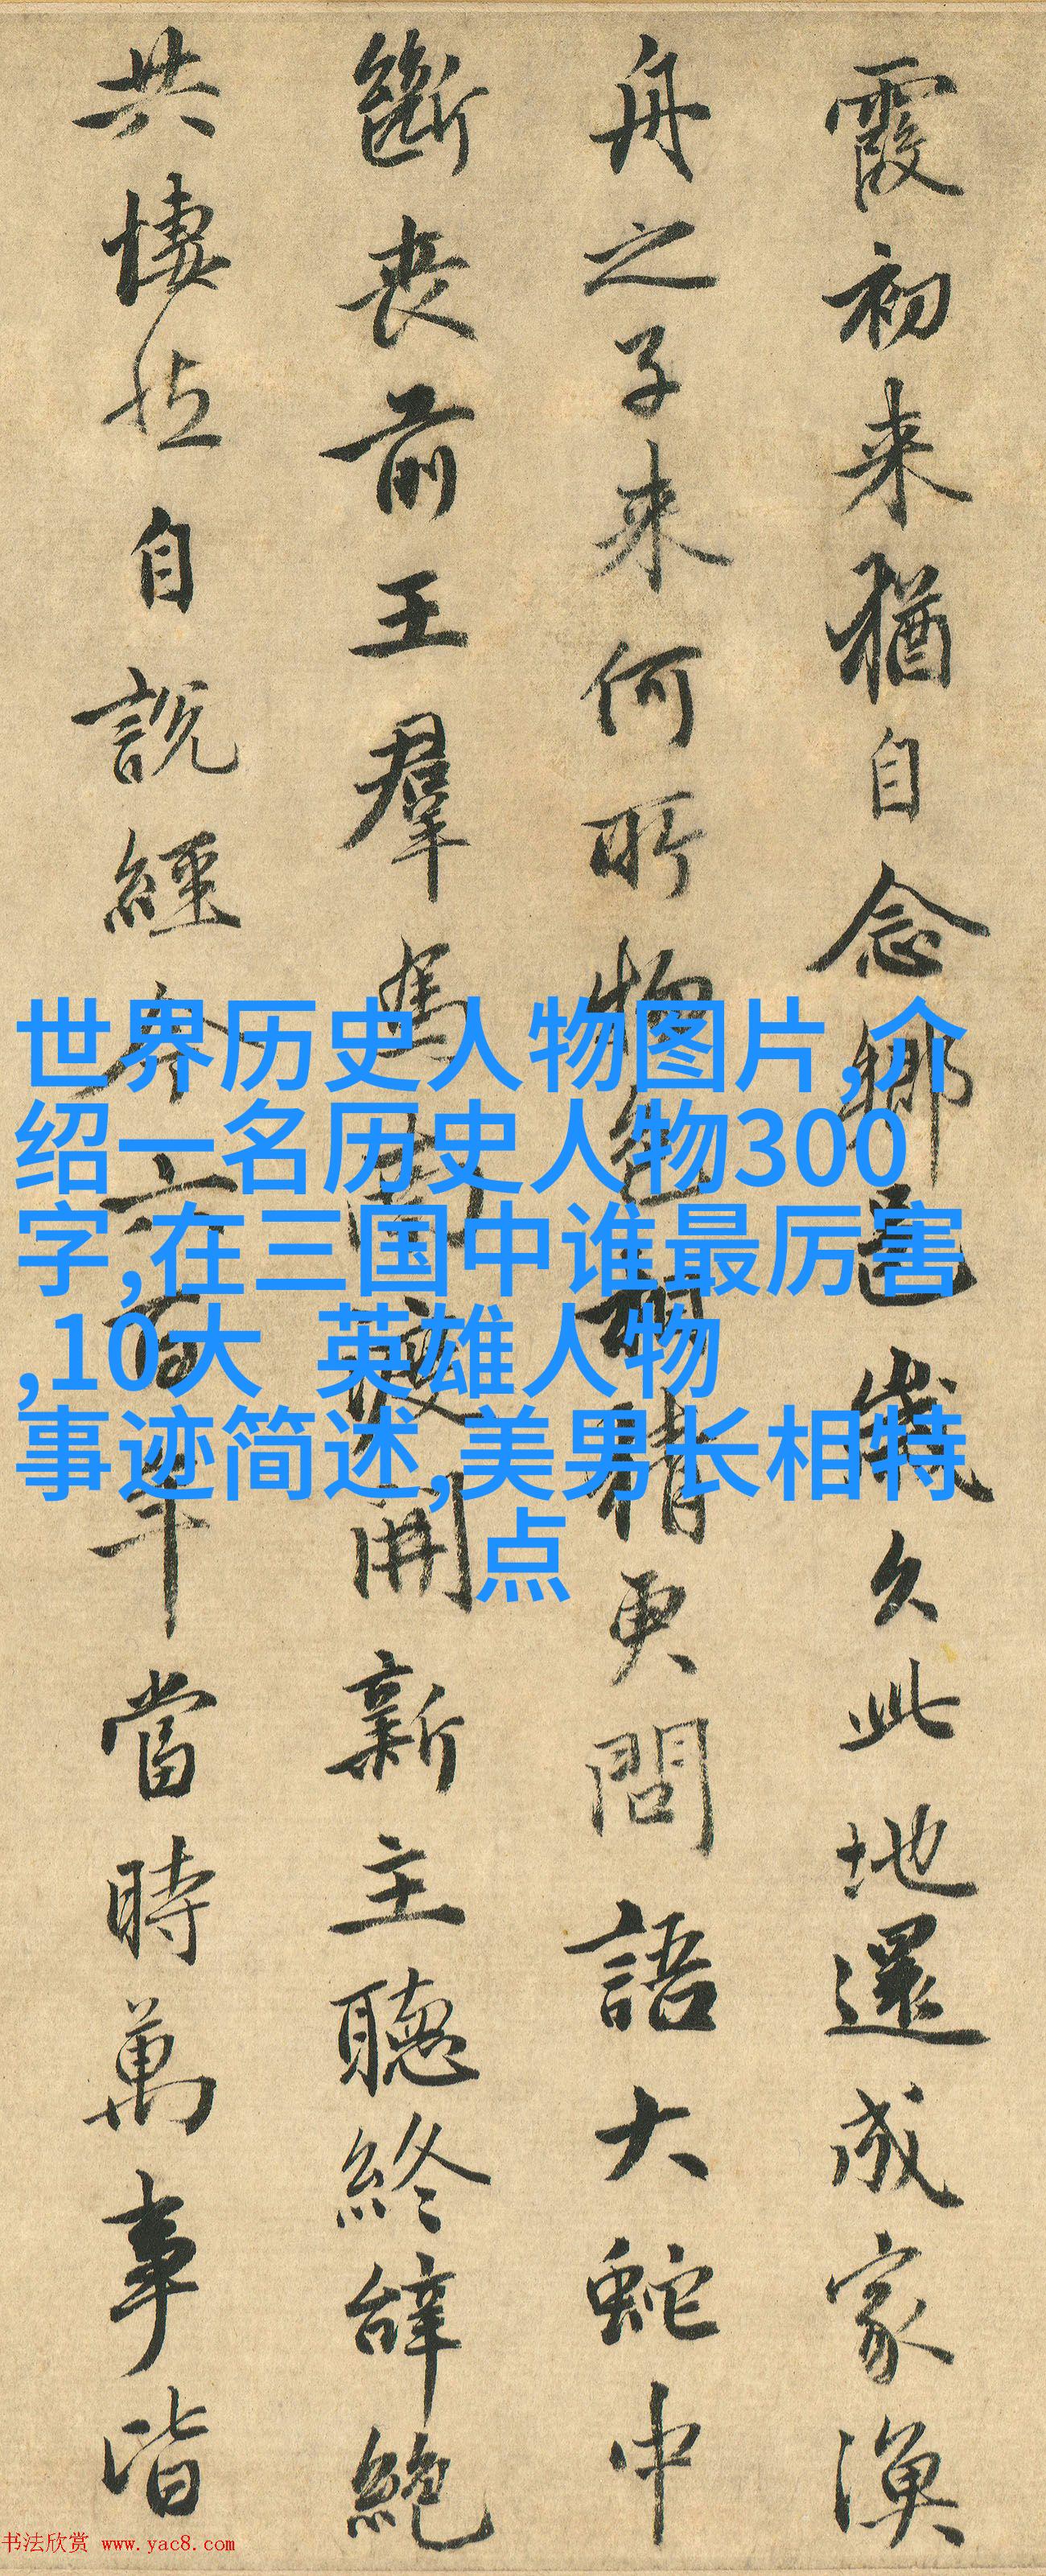 霞初来猶自念鄉邑歲久此地還成家漁
舟之子来何所物色相猜更問語大蛇中
斷喪前王羣馬南渡開新主聽終辭絕
共悽然自說經今六百年當時萬事皆
世界历史人物图片,介
绍一名历史人物300
字,在三国中谁最厉害
,10大 英雄人物
事迹简述,美男长相特
点
书法欣赏 www.yac8.com